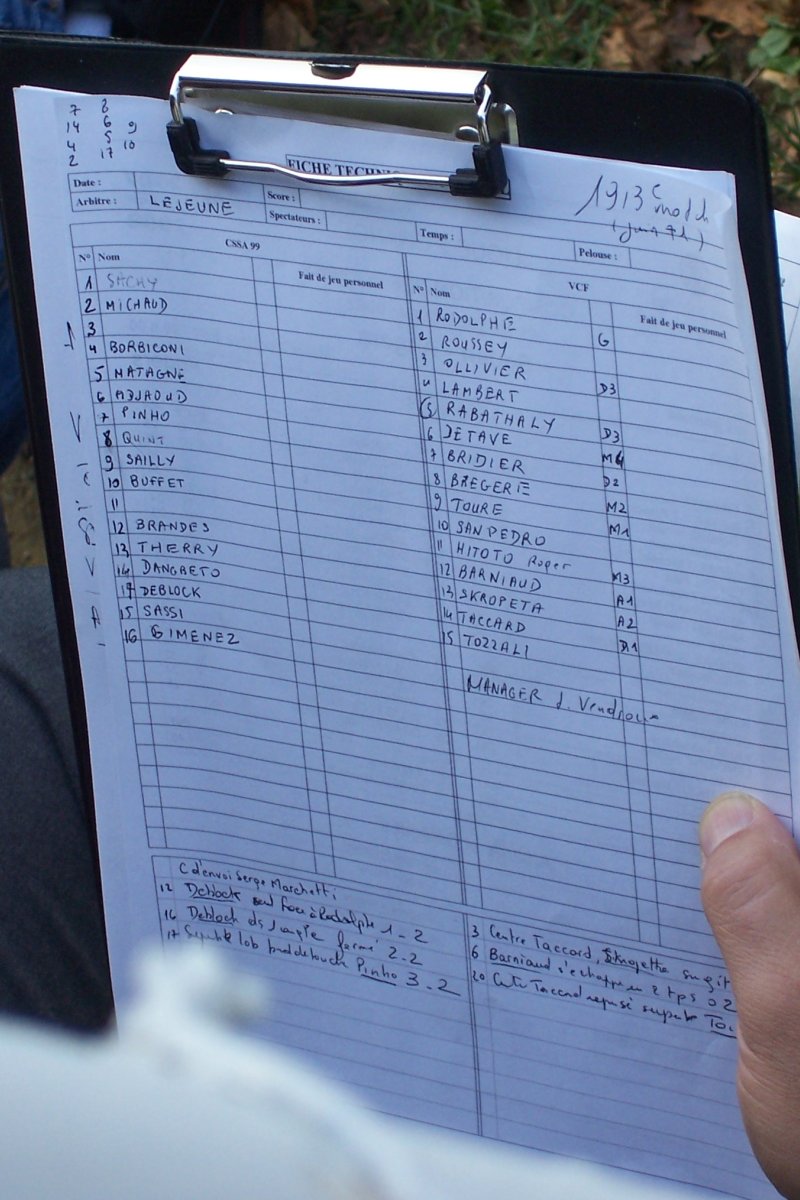 7 8
14 6 9
4 5 10
2 17
FICHE TECHNI
1913 match
Date :
Score :
Arbitre : LEJEUNE
Spectateurs :
Temps :
Pelouse :
CSSA 99
N° Nom
Fait de jeu personnel
1 SACHY
2 MICHAUD
3
4 BORBICONI
5 MATAGNE
6 MDJAOUD
7 PINHO
8 QUINT
9 SAILLY
10 BUFFET
11
12 BRANDES
13 THERRY
14 DANGBETO
17 DEBLOCK
15 SASSI
16 GIMENEZ
VCF
N° Nom
Fait de jeu personnel
1 RODOLPHE G
2 ROUSSEY
3 OLLIVIER D3
4 LAMBERT
5 RABATHALY D3
6 DETAVE M4
7 BRIDIER D2
8 BREGERIE M2
9 TOURE M1
10 SANPEDRO
11 HITOTO Roger M3
12 BARNIAUD A1
13 SKROPETA A2
14 TACCARD D1
15 TOZZALI
MANAGER J. Vendroux
C d'envoi Serge Marchetti
12 Deblock seul face à Rodolphe 1-2
16 Deblock ds angle fermé 2-2
17 Superbe lob Pinho 3-2
3 Centre Taccard, surgit
6 Barniaud s'échappe en 2 tps 0 2
20 Taccard repris superbe Tou